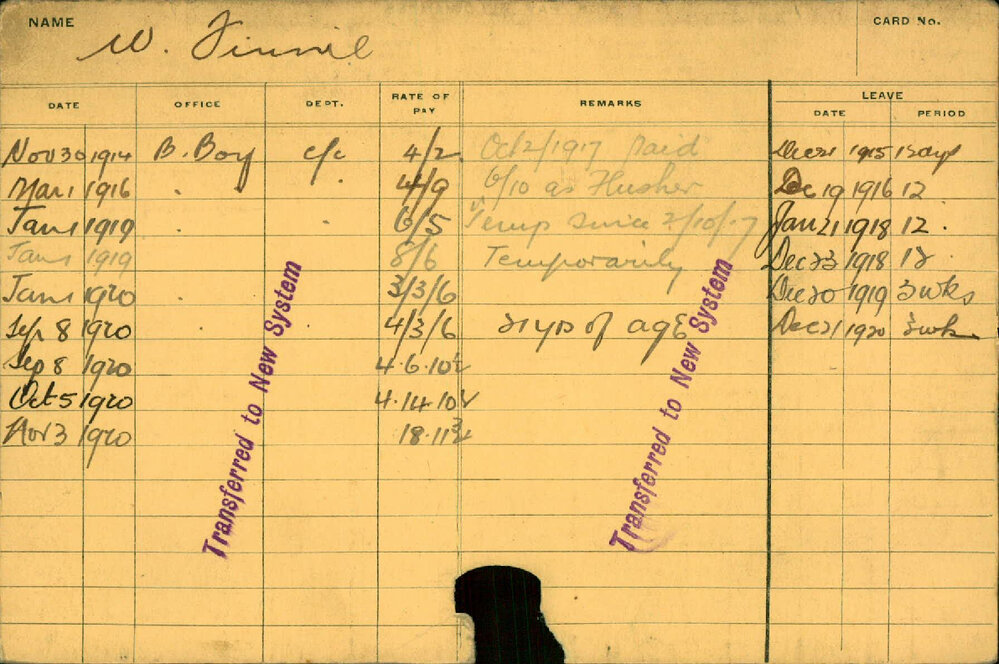 NAME W. Finnie CARD No.
LEAVE
DATE OFFICE DEPT. RATE OF PAY REMARKS DATE PERIOD
Nov 30 1914 B. Boy c/c 4/2 Oct 2/1917 Paid Dec 21 1915 12 days
Mar 1 1916 . . 4/9 6/10 as Flusher Dec 19 1916 12
Jan 1 1919 . . 6/5 Temp since 2/10/17 Jan 21 1918 12.
Jan 1 1919 8/6 Temporarily Dec 23 1918 12
Jan 1 1920 . 3/3/6 Dec 20 1919 3 wks
Sep 8 1920 . . 4/3/6 21 yrs of age Dec 21 1920 3 wks
Sep 8 1920 4.6.10½
Oct 5 1920 4.14.10½
Nov 3 1920 18.11¾
Transferred to New System
Transferred to New System